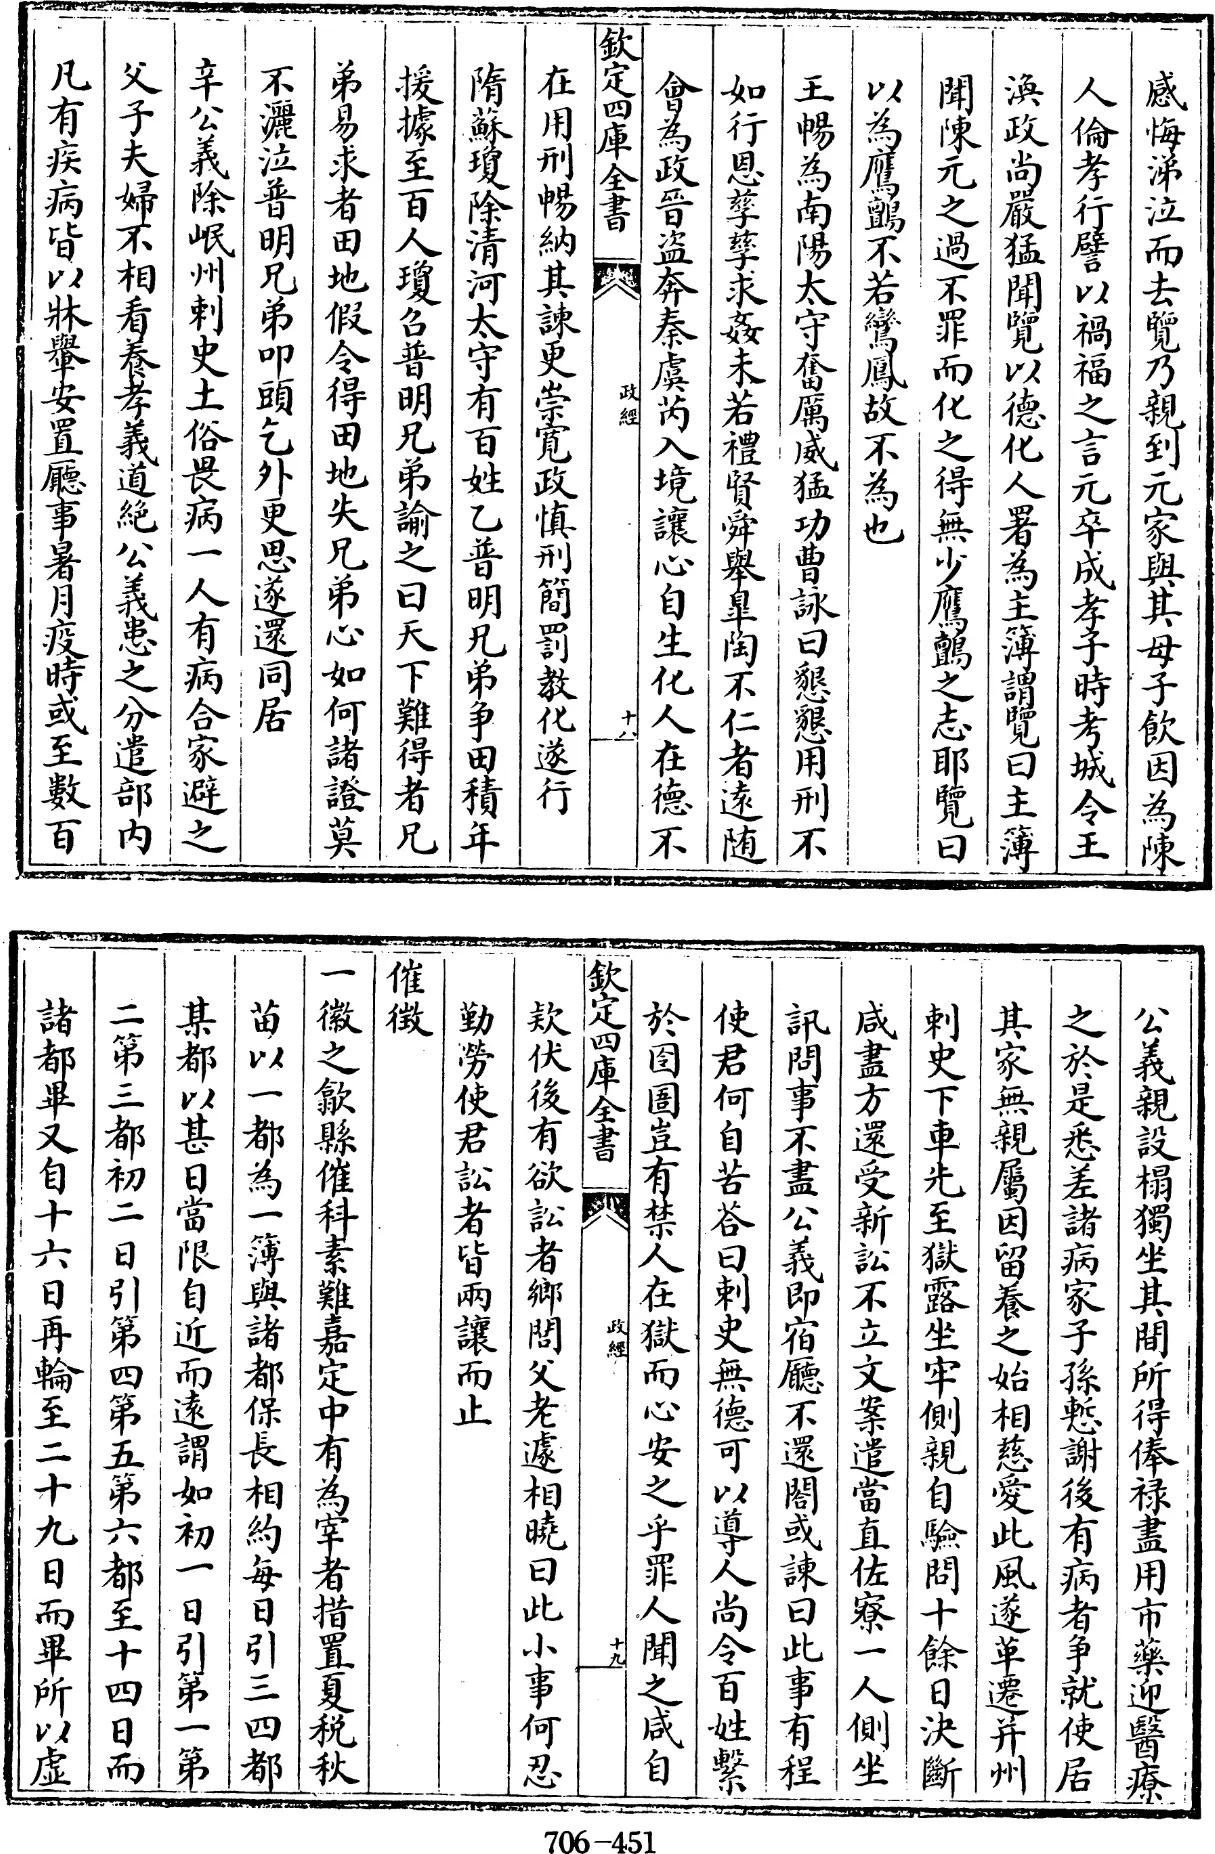 感悔涕泣而去覽乃親到元家與其母子飲因為陳
人倫孝行譬以禍福之言元卒成孝子時考城令王
渙政尚嚴猛聞覽以德化人署為主簿謂覽曰主簿
聞陳元之過不罪而化之得無少鷹鸇之志耶覽曰
以為鷹鸇不若鸞鳳故不為也
王暢為南陽太守奮厲威猛功曹詠曰懇懇用刑不
如行恩孳孳求姦未若禮賢舜舉臯陶不仁者遠随
會為政晉盜奔秦虞芮入境讓心自生化人在德不
欽定四庫全書
政經
十八
在用刑暢納其諫更崇寬政慎刑簡罰教化遂行
隋蘇瓊除清河太守有百姓乙普明兄弟争田積年
援據至百人瓊召普明兄弟諭之曰天下難得者兄
弟易求者田地假令得田地失兄弟心如何諸證莫
不灑泣普明兄弟叩頭乞外更思遂還同居
辛公義除岷州刺史土俗畏病一人有病合家避之
父子夫婦不相看養孝義道絶公義患之分遣部内
凡有疾病皆以牀轝安置廳事暑月疫時或至數百
公義親設榻獨坐其間所得俸禄盡用市藥迎醫療
之於是悉差諸病家子孫慙謝後有病者争就使居
其家無親屬因留養之始相慈愛此風遂革遷并州
刺史下車先至獄露坐牢側親自驗問十餘日決斷
咸盡方還受新訟不立文案遣當直佐寮一人側坐
訊問事不盡公義即宿廳不還閤或諫曰此事有程
使君何自苦荅曰刺史無德可以導人尚令百姓繫
於囹圄豈有禁人在獄而心安之乎罪人聞之咸自
欽定四庫全書
政經
十九
欵伏後有欲訟者鄉閭父老遽相曉曰此小事何忍
勤勞使君訟者皆兩讓而止
催徴
一徽之歙縣催科素難嘉定中有為宰者措置夏税秋
苗以一都為一簿與諸都保長相約每日引三四都
某都以甚日當限自近而遠謂如初一日引第一第
二第三都初二日引第四第五第六都至十四日而
諸都畢又自十六日再輪至二十九日而畢所以虚
706-451